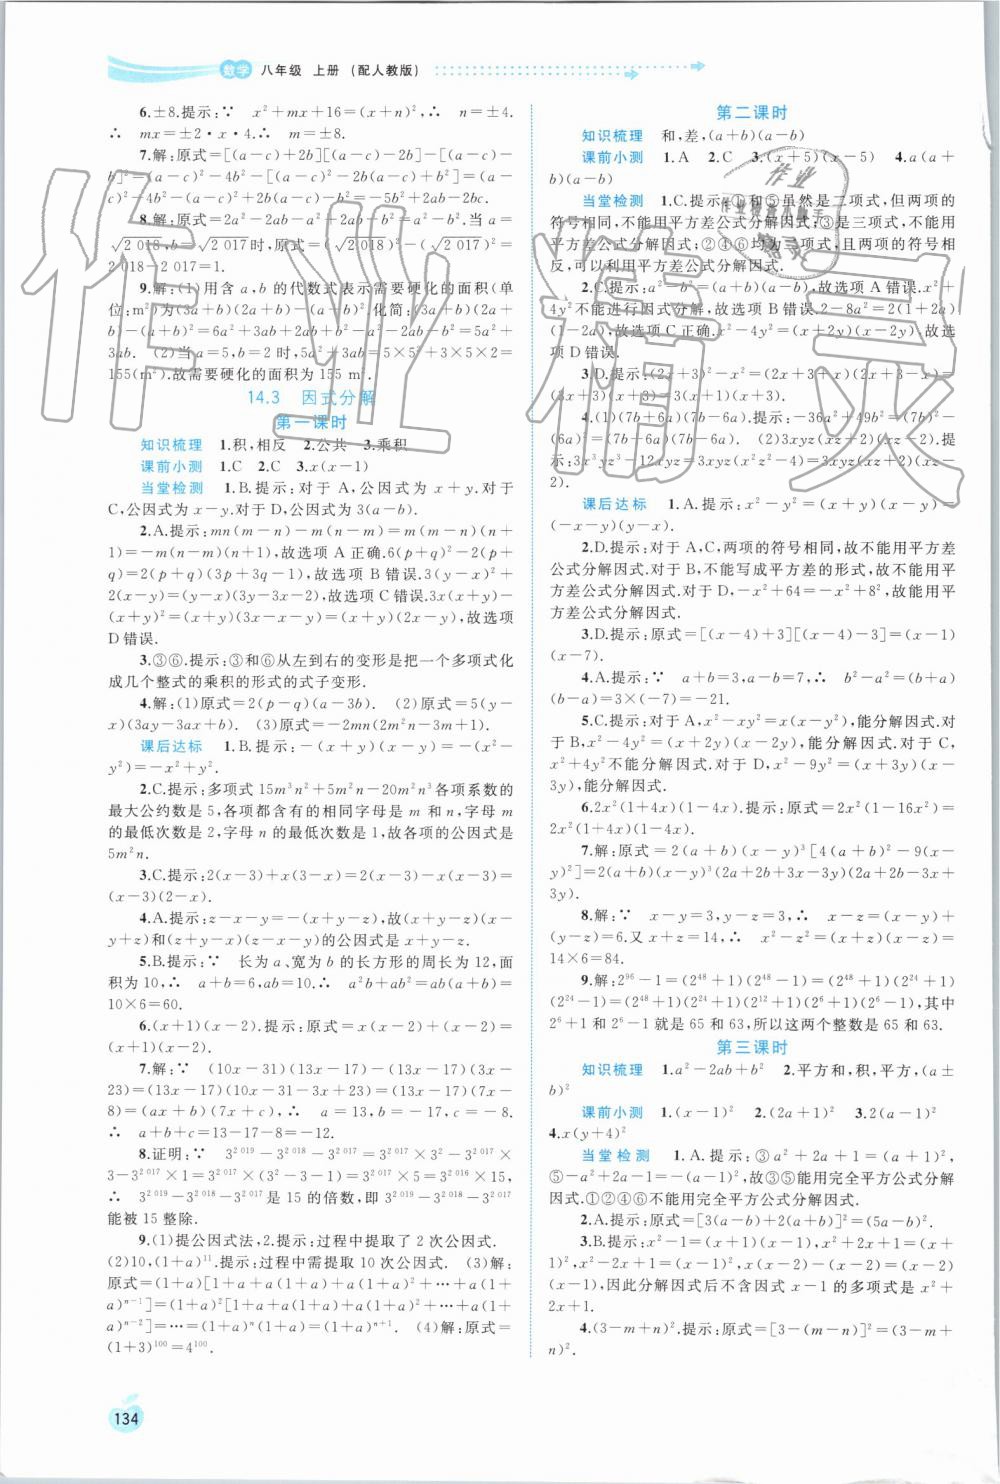 数学 八年级 上册 (配人教版)
6.±8.提示:∵ x²+mx+16=(x+n)²,∴ n=±4.
∴ mx=±2·x·4.∴ m=±8.
7.解:原式=[(a-c)+2b][(a-c)-2b]-[(a-c)-
b]²=(a-c)²-4b²-[(a-c)²-2b(a-c)+b²]=(a-
c)²-4b²-(a-c)²+2b(a-c)-b²=-5b²+2ab-2bc.
8.解:原式=2a²-2ab-a²+2ab-b²=a²-b².当 a=
√2 018,b=√2 017时,原式=(√2 018)²-(√2 017)²=
2 018-2 017=1.
9.解:(1)用含 a,b 的代数式表示需要硬化的面积(单
位:m²)为(3a+b)(2a+b)-(a+b)².化简:(3a+b)(2a+
b)-(a+b)²=6a²+3ab+2ab+b²-a²-2ab-b²=5a²+
3ab. (2)当 a=5,b=2 时,5a²+3ab=5×5²+3×5×2=
155(m²).故需要硬化的面积为 155 m².
14.3 因式分解
第一课时
知识梳理 1.积,相反 2.公共 3.乘积
课前小测 1.C 2.C 3.x(x-1)
当堂检测 1.B.提示:对于 A,公因式为 x+y.对于
C,公因式为 x-y.对于 D,公因式为 3(a-b).
2.A.提示:mn(m-n)-m(n-m)=m(m-n)(n+
1)=-m(n-m)(n+1),故选项 A 正确.6(p+q)²-2(p+
q)=2(p+q)(3p+3q-1),故选项 B 错误.3(y-x)²+
2(x-y)=(x-y)(3x-3y+2),故选项C错误.
x(x+y)-
(x+y)²=(x+y)(3x-x-y)=(x+y)(2x-y),故选项
D 错误.
3.③⑥.提示:③和⑥从左到右的变形是把一个多项式化
成几个整式的乘积的形式的式子变形.
4.解:(1)原式=2(p-q)(a-3b). (2)原式=5(y-
x)(3ay-3ax+b). (3)原式=-2mn(2m²n-3m+1).
课后达标 1.B.提示:-(x+y)(x-y)=-(x²-
y²)=-x²+y².
2.C.提示:多项式 15m³n²+5m²n-20m²n³各项系数的
最大公约数是 5,各项都含有的相同字母是 m 和 n,字母 m
的最低次数是 2,字母 n 的最低次数是 1,故各项的公因式是
5m²n.
3.C.提示:2(x-3)+x(3-x)=2(x-3)-x(x-3)=
(x-3)(2-x).
4.A.提示:z-x-y=-(x+y-z),故(x+y-z)(x-
y+z)和(z-x-y)(y-z-x)的公因式是 x+y-z.
5.B.提示:∵ 长为 a、宽为 b 的长方形的周长为 12,面
积为 10,∴ a+b=6,ab=10.∴ a²b+ab²=ab(a+b)=
10×6=60.
6.(x+1)(x-2).提示:原式=x(x-2)+(x-2)=
(x+1)(x-2).
7.解:∵ (10x-31)(13x-17)-(13x-17)(3x-
23)=(13x-17)(10x-31-3x+23)=(13x-17)(7x-
8)=(ax+b)(7x+c),∴ a=13,b=-17,c=-8.
∴ a+b+c=13-17-8=-12.
8.证明:∵ 3^2 019-3^2 018-3^2 017=3^2 017×3²-3^2 017×
3-3^2 017×1=3^2 017×(3²-3-1)=3^2 017×5=3^2 016×15,
∴ 3^2 019-3^2 018-3^2 017是 15 的倍数,即 3^2 019-3^2 018-3^2 017
能被 15 整除.
9.(1)提公因式法,2.提示:过程中提取了 2 次公因式.
(2)10,(1+a)¹¹.提示:过程中需提取 10 次公因式. (3)解:
原式=(1+a)[1+a+a(1+a)+a(1+a)²+…+a(1+
a)ⁿ⁻¹]=(1+a)²[1+a+a(1+a)+a(1+a)²+…+a(1+
a)ⁿ⁻²]=…=(1+a)ⁿ(1+a)=(1+a)ⁿ⁺¹. (4)解:原式=
(1+3)¹⁰⁰=4¹⁰⁰.
第二课时
知识梳理 和,差,(a+b)(a-b)
课前小测 1.A 2.C 3.(x+5)(x-5) 4.a(a+
b)(a-b)
当堂检测 1.C.提示:①和⑤虽然是二项式,但两项的
符号相同,不能用平方差公式分解因式;③是三项式,不能用
平方差公式分解因式;②④⑥均为二项式,且两项的符号相
反,可以利用平方差公式分解因式.
2.C.提示:a²-b²=(a+b)(a-b),故选项 A 错误.x²+
4y²不能进行因式分解,故选项 B 错误.2-8a²=2(1+2a)
(1-2a),故选项 C 正确.x²-4y²=(x+2y)(x-2y),故选
项 D 错误.
3.D.提示:(2x+3)²-x²=(2x+3+x)(2x+3-x)=
(3x+3)(x+3)=3(x+1)(x+3).
4.(1)(7b+6a)(7b-6a).提示:-36a²+49b²=(7b)²-
(6a)²=(7b+6a)(7b-6a). (2)3xyz(xz+2)(xz-2).提
示:3x³yz³-12xyz=3xyz(x²z²-4)=3xyz(xz+2)(xz-
2).
课后达标 1.A.提示:x²-y²=(x+y)(x-y)=
(-x-y)(y-x).
2.D.提示:对于 A,C,两项的符号相同,故不能用平方差
公式分解因式.对于 B,不能写成平方差的形式,故不能用平
方差公式分解因式.对于 D,-x²+64=-x²+8²,故能用平
方差公式分解因式.
3.D.提示:原式=[(x-4)+3][(x-4)-3]=(x-1)
(x-7).
4.A.提示:∵ a+b=3,a-b=7,∴ b²-a²=(b+a)
(b-a)=3×(-7)=-21.
5.C.提示:对于 A,x³-xy²=x(x²-y²),能分解因式.对
于 B,x²-4y²=(x+2y)(x-2y),能分解因式.对于 C,
x²+4y²不能分解因式.对于 D,x²-9y²=(x+3y)(x-
3y),能分解因式.
6.2x²(1+4x)(1-4x).提示:原式=2x²(1-16x²)=
2x²(1+4x)(1-4x).
7.解:原式=2(a+b)(x-y)³[4(a+b)²-9(x-
y)²]=2(a+b)(x-y)³(2a+2b+3x-3y)(2a+2b-3x+
3y).
8.解:∵ x-y=3,y-z=3,∴ x-z=(x-y)+
(y-z)=6.又 x+z=14,∴ x²-z²=(x+z)(x-z)=
14×6=84.
9.解:2⁹⁶-1=(2⁴⁸+1)(2⁴⁸-1)=(2⁴⁸+1)(2²⁴+1)
(2²⁴-1)=(2⁴⁸+1)(2²⁴+1)(2¹²+1)(2⁶+1)(2⁶-1),其中
2⁶+1 和 2⁶-1 就是 65 和 63,所以这两个整数是 65 和 63.
第三课时
知识梳理 1.a²-2ab+b² 2.平方和,积,平方,(a±
b)²
课前小测 1.(x-1)² 2.(2a+1)² 3.2(a-1)²
4.x(y+4)²
当堂检测 1.A.提示:③a²+2a+1=(a+1)²,
⑤-a²+2a-1=-(a-1)²,故③⑤能用完全平方公式分解
因式.①②④⑥不能用完全平方公式分解因式.
2.A.提示:原式=[3(a-b)+2(a+b)]²=(5a-b)².
3.B.提示:x²-1=(x+1)(x-1),x(x-2)-(x-2)=(x-2)
(x-1),x²-2x+1=(x-1)²,
因此分解因式后不含因式 x-1 的多项式是 x²+
2x+1.
4.(3-m+n)².提示:原式=[3-(m-n)]²=(3-m+
n)².
134
作业精灵